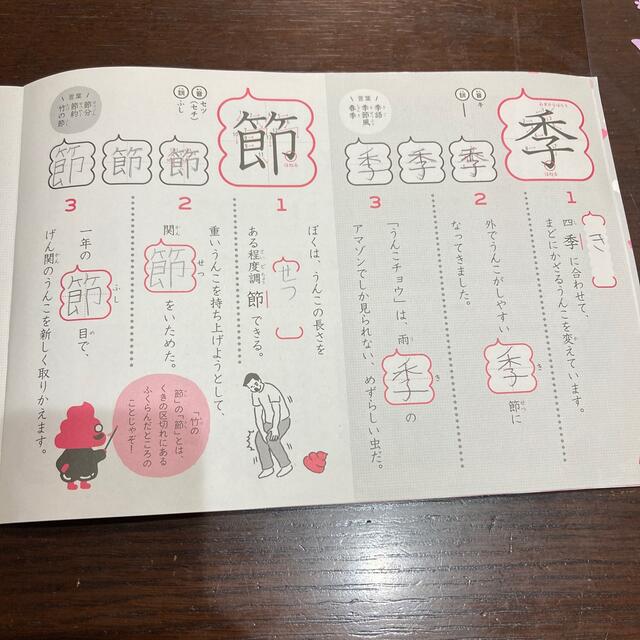 季
はねる
音 キ
訓 ―
言葉
季語
季節風
春季
季
季
季
1
四季に合わせて、
まどにかざるうんこを変えています。
き
2
外でうんこがしやすい季節に
なってきました。
3
「うんこチョウ」は、雨季の
アマゾンでしか見られない、めずらしい虫だ。
節
はねる
音 セツ
(セチ)
訓 ふし
言葉
節分
節約
竹の節
節
節
節
1
ぼくは、うんこの長さを
ある程度調節できる。
せつ
2
重いうんこを持ち上げようとして、
関節をいためた。
3
一年の節目で、
げん関のうんこを新しく取りかえます。
「竹の
節」の「節」とは、
くきの区切れにある
ふくらんだところの
ことじゃぞ!